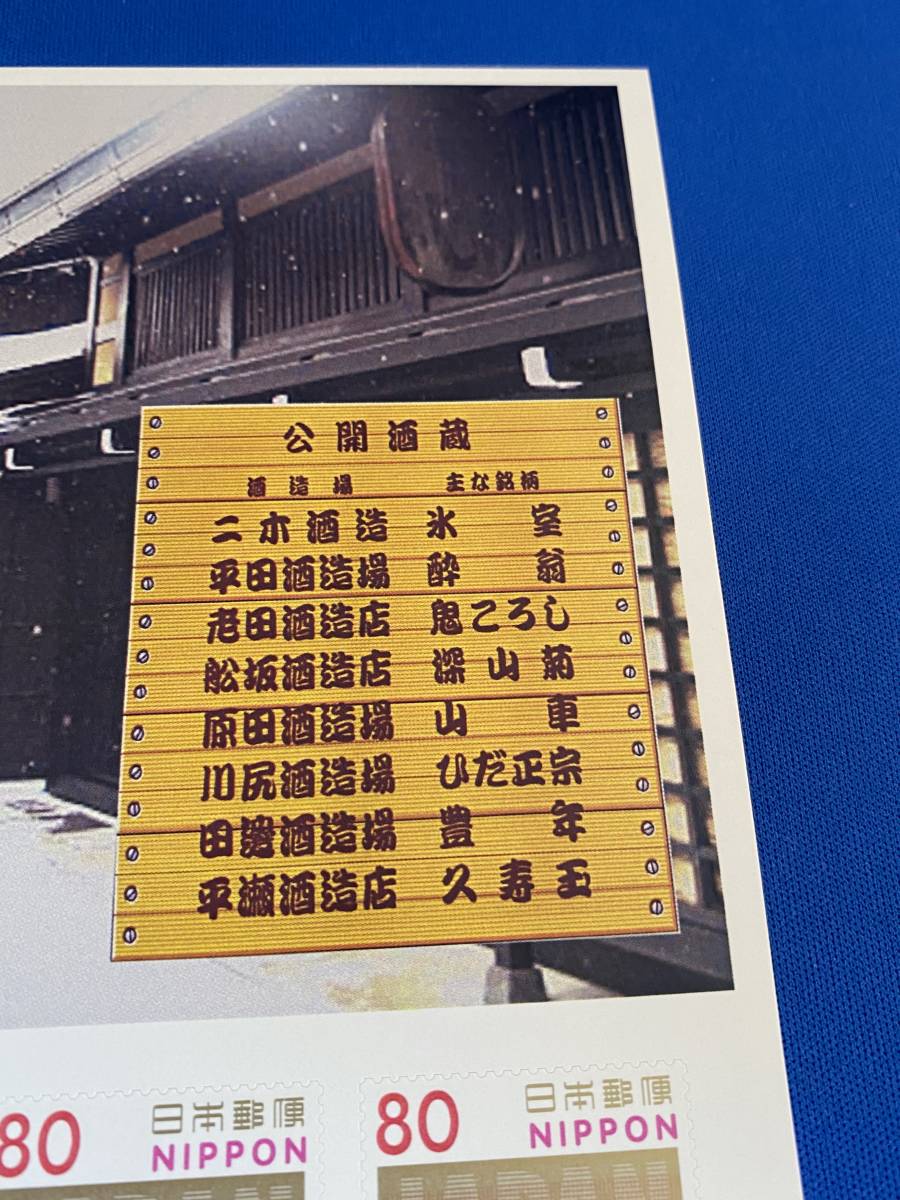 公開酒蔵
酒造場 主な銘柄
二木酒造 氷室
平田酒造場 酔翁
老田酒造店 鬼ころし
舩坂酒造店 深山菊
原田酒造場 山車
川尻酒造場 ひだ正宗
田邊酒造場 豊年
平瀬酒造店 久寿玉
80 日本郵便 NIPPON
80 日本郵便 NIPPON